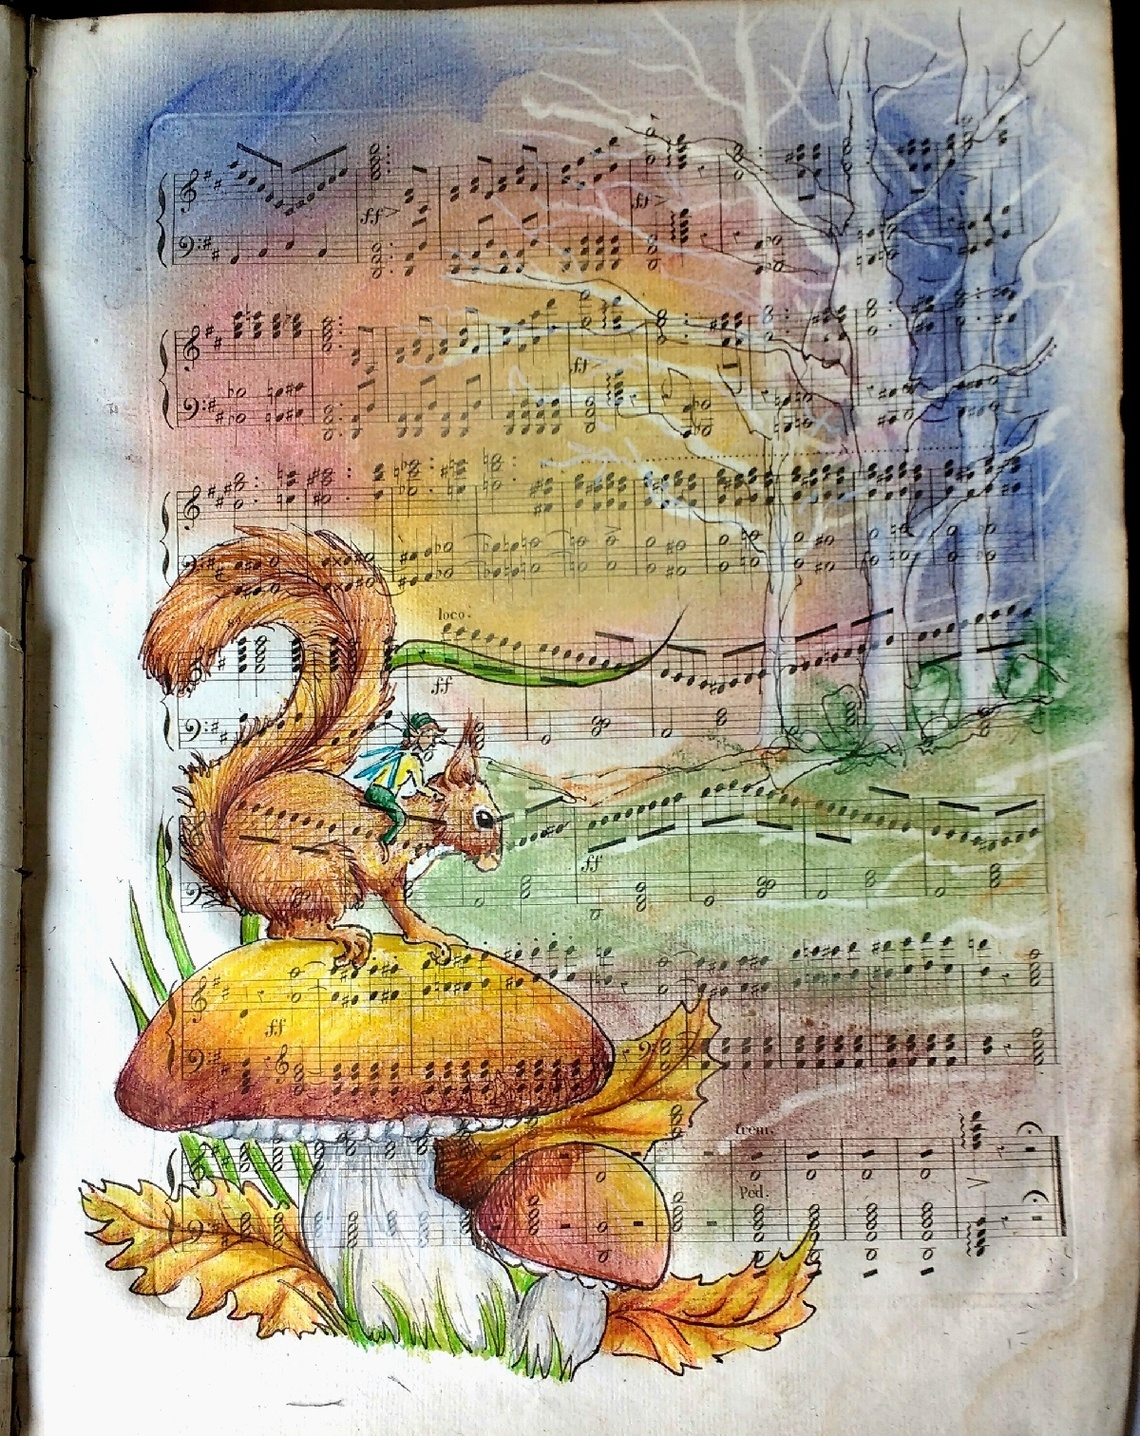 ff ff
ff
loco.
ff
ff
ff
trem.
Ped.